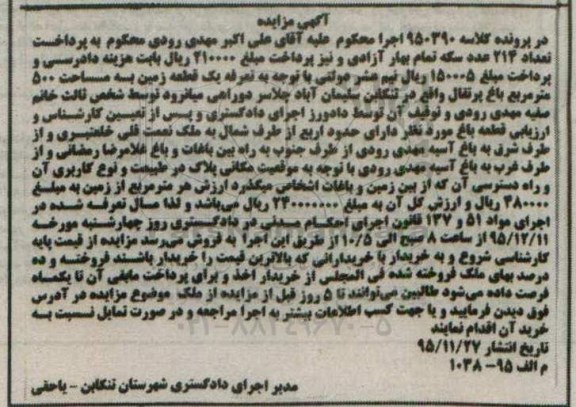 آگهی مزایده
در پرونده کلاسه ۹۵۰۳۹۰ اجرا محکوم علیه آقای علی اکبر مهدی رودی محکوم به پرداخت
تعداد ۲۱۴ عدد سکه تمام بهار آزادی و نیز پرداخت مبلغ ۲۱۰۰۰۰ ریال بابت هزینه دادرسی و
پرداخت مبلغ ۱۵۰۰۰۵ ریال نیم عشر دولتی با توجه به تعرفه یک قطعه زمین به مساحت ۵۰۰
مترمربع باغ پرتقال واقع در تنکابن سلیمان آباد جلاسر دوراهی میانرود توسط شخص ثالث خانم
صفیه مهدی رودی و توقیف آن توسط دادورز اجرای دادگستری و پس از تعیین کارشناس و
ارزیابی قطعه باغ مورد نظر دارای حدود اربع از طرف شمال به ملک نعمت قلی خلعتبری و از
طرف شرق به باغ آسیه مهدی رودی از طرف جنوب به راه بین باغات و باغ غلامرضا رمضانی و از
طرف غرب به باغ آسیه مهدی رودی با توجه به موقعیت مکانی پلاک در طبیعت و نوع کاربری آن
و راه دسترسی آن که از بین زمین و باغات اشخاص میگذرد ارزش هر مترمربع از زمین به مبلغ
۴۸۰۰۰۰ ریال و ارزش کل آن به مبلغ ۲۴۰۰۰۰۰۰۰ ریال می‌باشد و لذا مال تعرفه شده در
اجرای مواد ۵۱ و ۱۳۷ قانون اجرای احکام مدنی در دادگستری روز چهارشنبه مورخه
۹۵/۱۲/۱۱ از ساعت ۸ صبح الی ۱۰/۵ از طریق این اجرا به فروش می‌رسد مزایده از قیمت پایه
کارشناسی شروع و به خریدار یا خریدارانی که بالاترین قیمت را خریدار باشند فروخته و ده
درصد بهای ملک فروخته شده فی المجلس از خریدار اخذ و برای پرداخت مابقی آن تا یکماه
فرصت داده می‌شود طالبین می‌توانند تا ۵ روز قبل از مزایده از ملک موضوع مزایده در آدرس
فوق دیدن فرمایید و یا جهت کسب اطلاعات بیشتر به اجرا مراجعه و در صورت تمایل نسبت به
خرید آن اقدام نمایند
تاریخ انتشار ۹۵/۱۱/۲۷
م الف ۹۵- ۱۰۳۸
مدیر اجرای دادگستری شهرستان تنکابن - یاحقی
۰۲۱-۸۸۳۴۹۶۷۰-۵